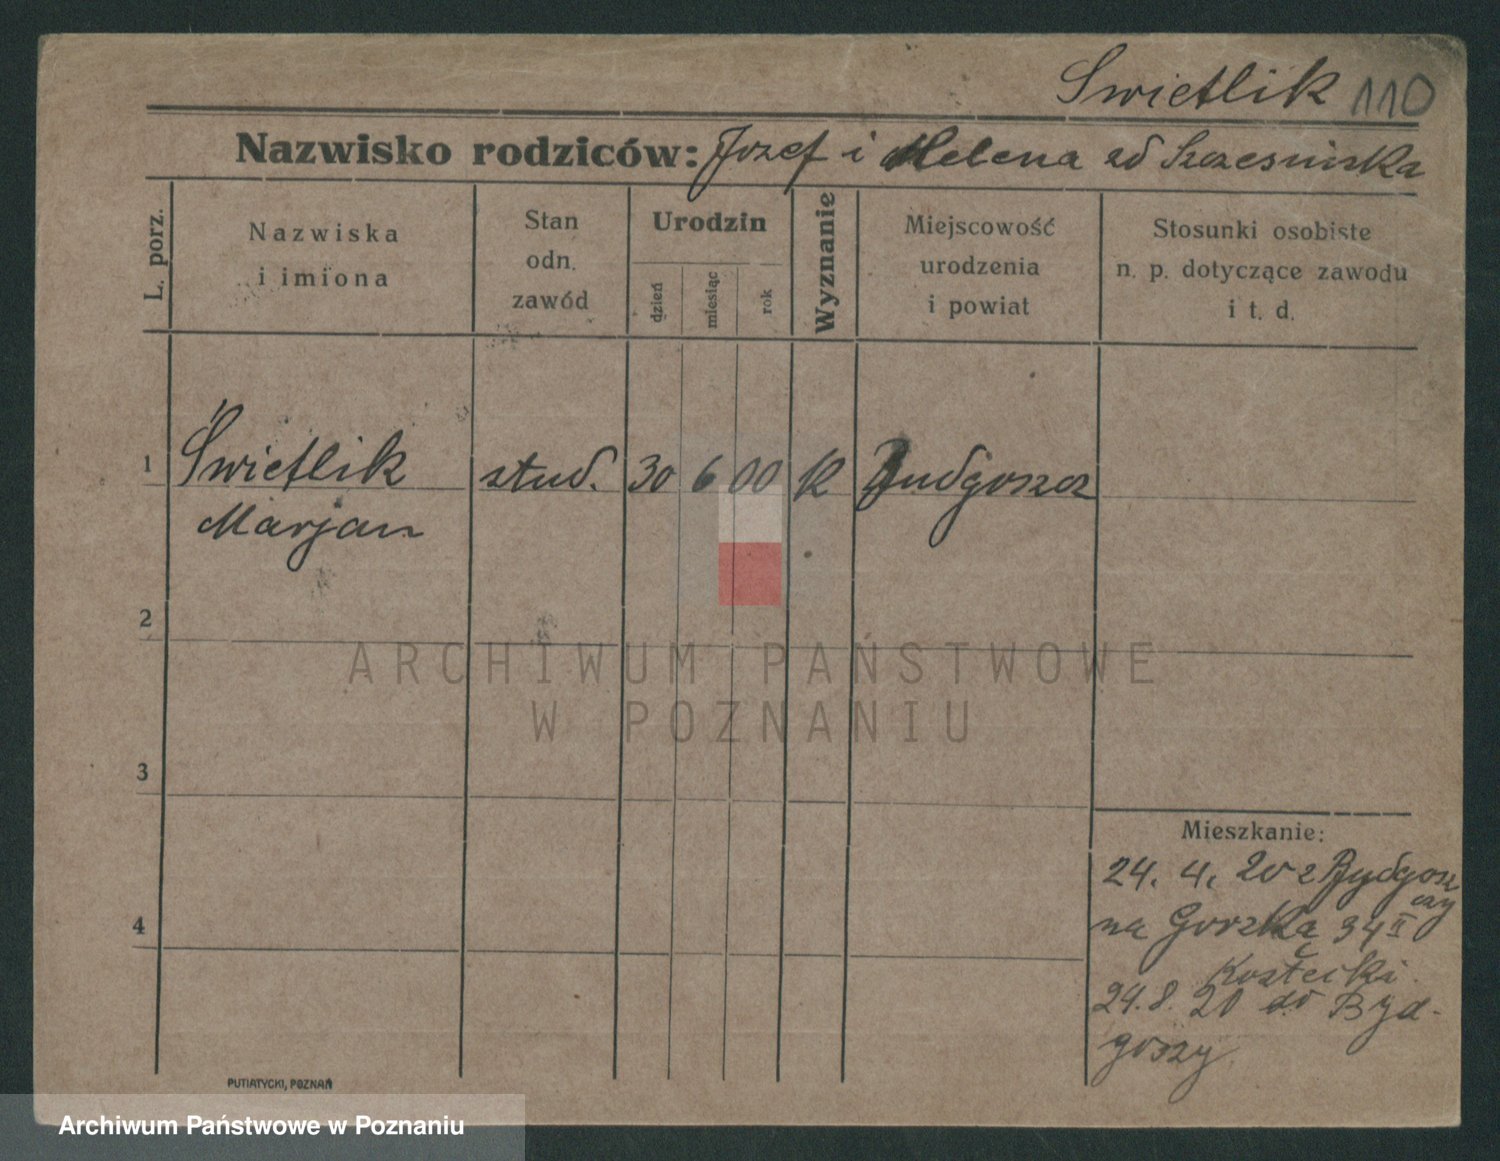 Swietlik 110
Nazwisko rodziców: Jozef i Helena zd Szczesinska
L. porz.
Nazwiska
i imiona
Stan
odn.
zawód
Urodzin
dzień
miesiąc
rok
Wyznanie
Miejscowość
urodzenia
i powiat
Stosunki osobiste
n. p. dotyczące zawodu
i t. d.
1 Świetlik stud. 30 6 00 k Budgoszcz
Marjan
2
ARCHIWUM PAŃSTWOWE
W POZNANIU
3
Mieszkanie:
24. 4. 20 z Bydgosz
czy
4
na Gorzka 34 II
Kostecki.
24.8. 20 do Byd-
goszy
PUTIATYCKI, POZNAŃ
Archiwum Państwowe w Poznaniu